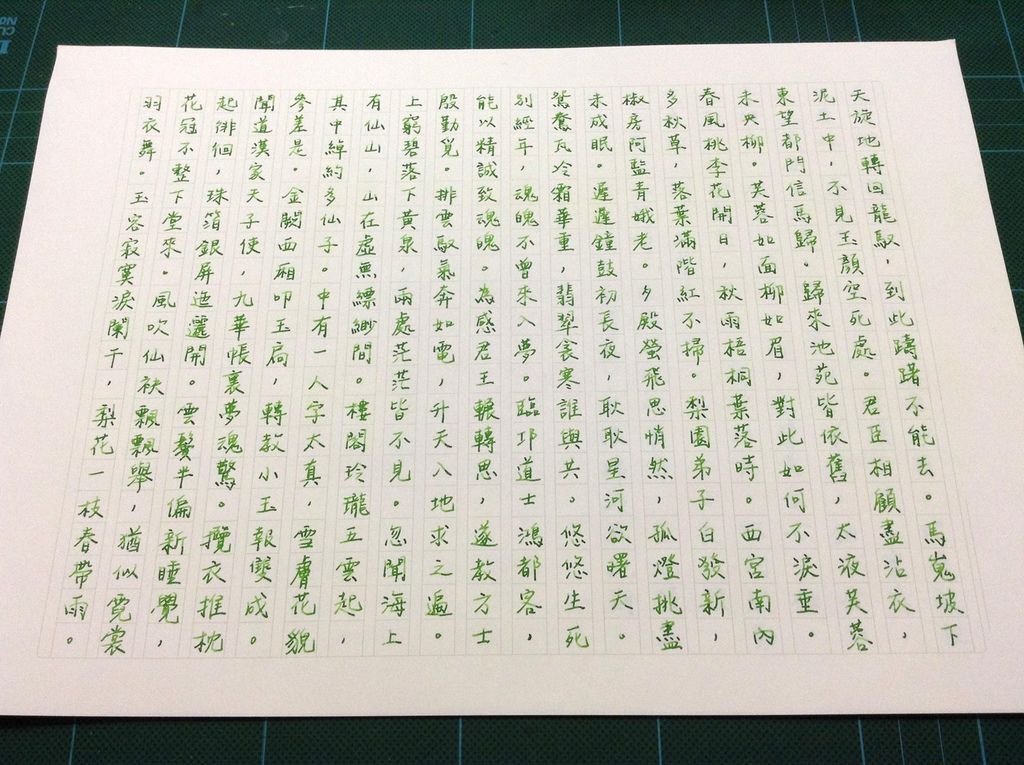 天旋地轉回龍馭，到此躊躇不能去。馬嵬坡下
泥土中，不見玉顏空死處。君臣相顧盡沾衣，
東望都門信馬歸。歸來池苑皆依舊，太液芙蓉
未央柳。芙蓉如面柳如眉，對此如何不淚垂。
春風桃李花開日，秋雨梧桐葉落時。西宮南內
多秋草，落葉滿階紅不掃。梨園弟子白發新，
椒房阿監青娥老。夕殿螢飛思悄然，孤燈挑盡
未成眠。遲遲鐘鼓初長夜，耿耿星河欲曙天。
鴛鴦瓦冷霜華重，翡翠衾寒誰與共。悠悠生死
別經年，魂魄不曾來入夢。臨邛道士鴻都客，
能以精誠致魂魄。為感君王輾轉思，遂教方士
殷勤覓。排雲馭氣奔如電，升天入地求之遍。
上窮碧落下黃泉，兩處茫茫皆不見。忽聞海上
有仙山，山在虛無縹緲間。樓閣玲瓏五雲起，
其中綽約多仙子。中有一人字太真，雪膚花貌
參差是。金闕西廂叩玉扃，轉教小玉報雙成。
聞道漢家天子使，九華帳裏夢魂驚。攬衣推枕
起徘徊，珠箔銀屏迤邐開。雲鬢半偏新睡覺，
花冠不整下堂來。風吹仙袂飄飄舉，猶似霓裳
羽衣舞。玉容寂寞淚闌干，梨花一枝春帶雨。